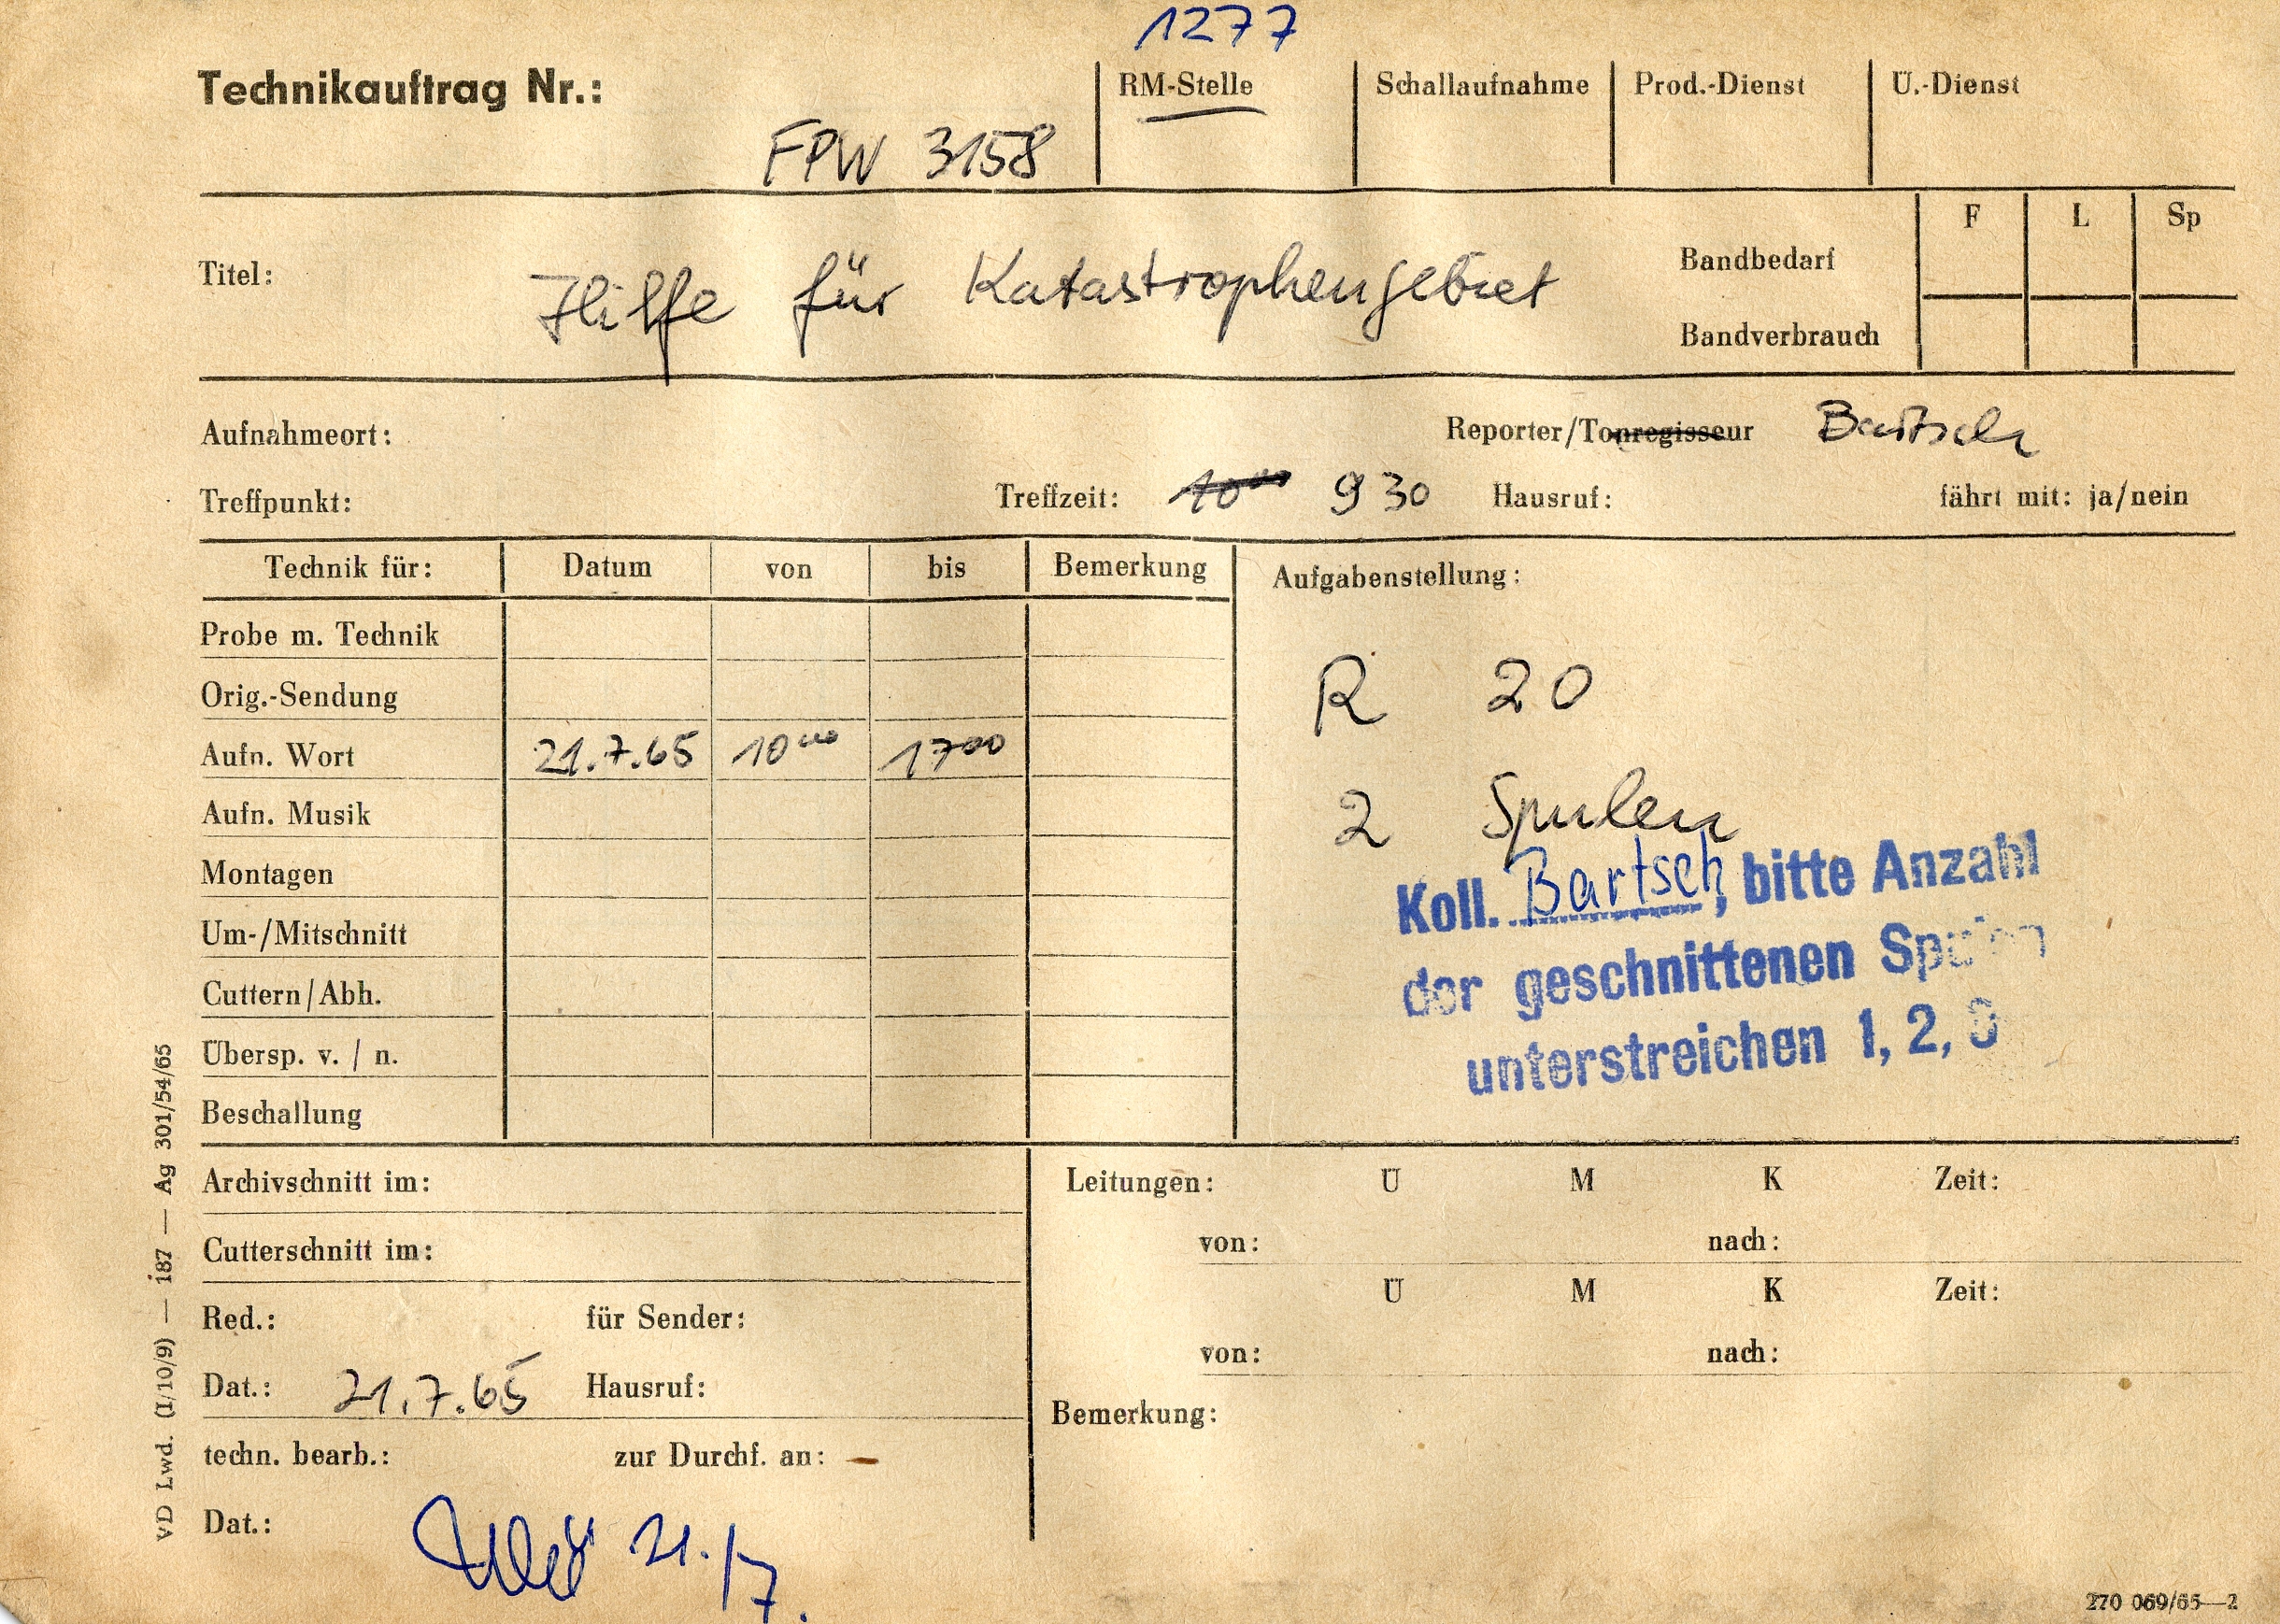 1277
Technikauftrag Nr.: RM-Stelle Schallaufnahme Prod.-Dienst Ü.-Dienst
FPW 3158
F L Sp
Titel: Hilfe für Katastrophengebiet Bandbedarf
Bandverbrauch
Aufnahmeort: Reporter/Tonregisseur Bartsch
Treffpunkt: Treffzeit: 10 00 9 30 Hausruf: fährt mit: ja/nein
Technik für: Datum von bis Bemerkung Aufgabenstellung:
Probe m. Technik
R 20
Orig.-Sendung
Aufn. Wort 21.7.65 10 00 17 00
Aufn. Musik
2 Spulen
Montagen
Koll. Bartsch, bitte Anzahl
Um-/Mitschnitt
der geschnittenen Spulen
Cuttern/Abh.
unterstreichen 1, 2, 3
Übersp. v. / n.
Beschallung
Archivschnitt im: Leitungen: Ü M K Zeit:
Cutterschnitt im: von: nach:
Ü M K Zeit:
Red.: für Sender:
von: nach:
Dat.: 21.7.65 Hausruf:
Bemerkung:
techn. bearb.: zur Durchf. an:
Dat.: 21./7.
VD Lwd. (I/10/9) — 187 — Ag 301/54/65
270 069/65—2